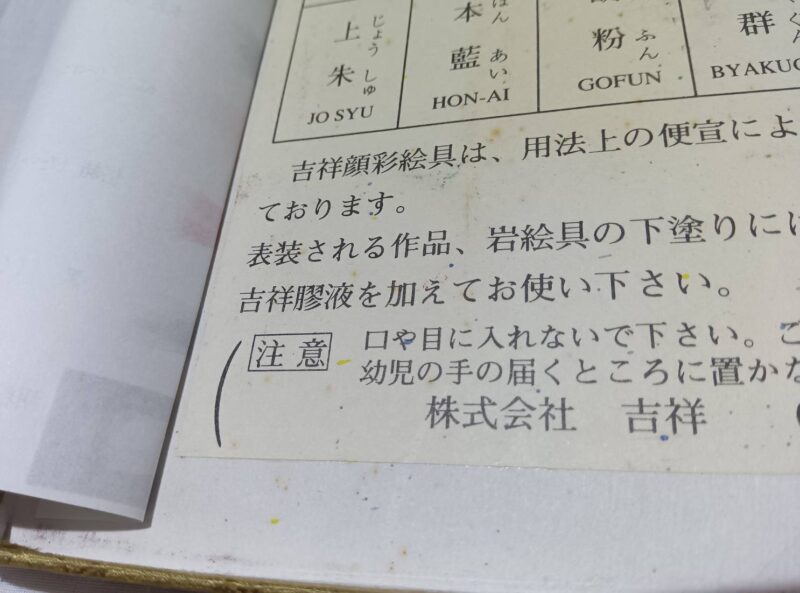 上朱
じょうしゅ
JO SYU
本藍
ほんあい
HON-AI
粉
ふん
GOFUN
群
ぐん
BYAKUG
吉祥顔彩絵具は、用法上の便宣によ
ております。
表装される作品、岩絵具の下塗りには
吉祥膠液を加えてお使い下さい。
注意
口や目に入れないで下さい。こ
幼児の手の届くところに置かな
株式会社 吉祥